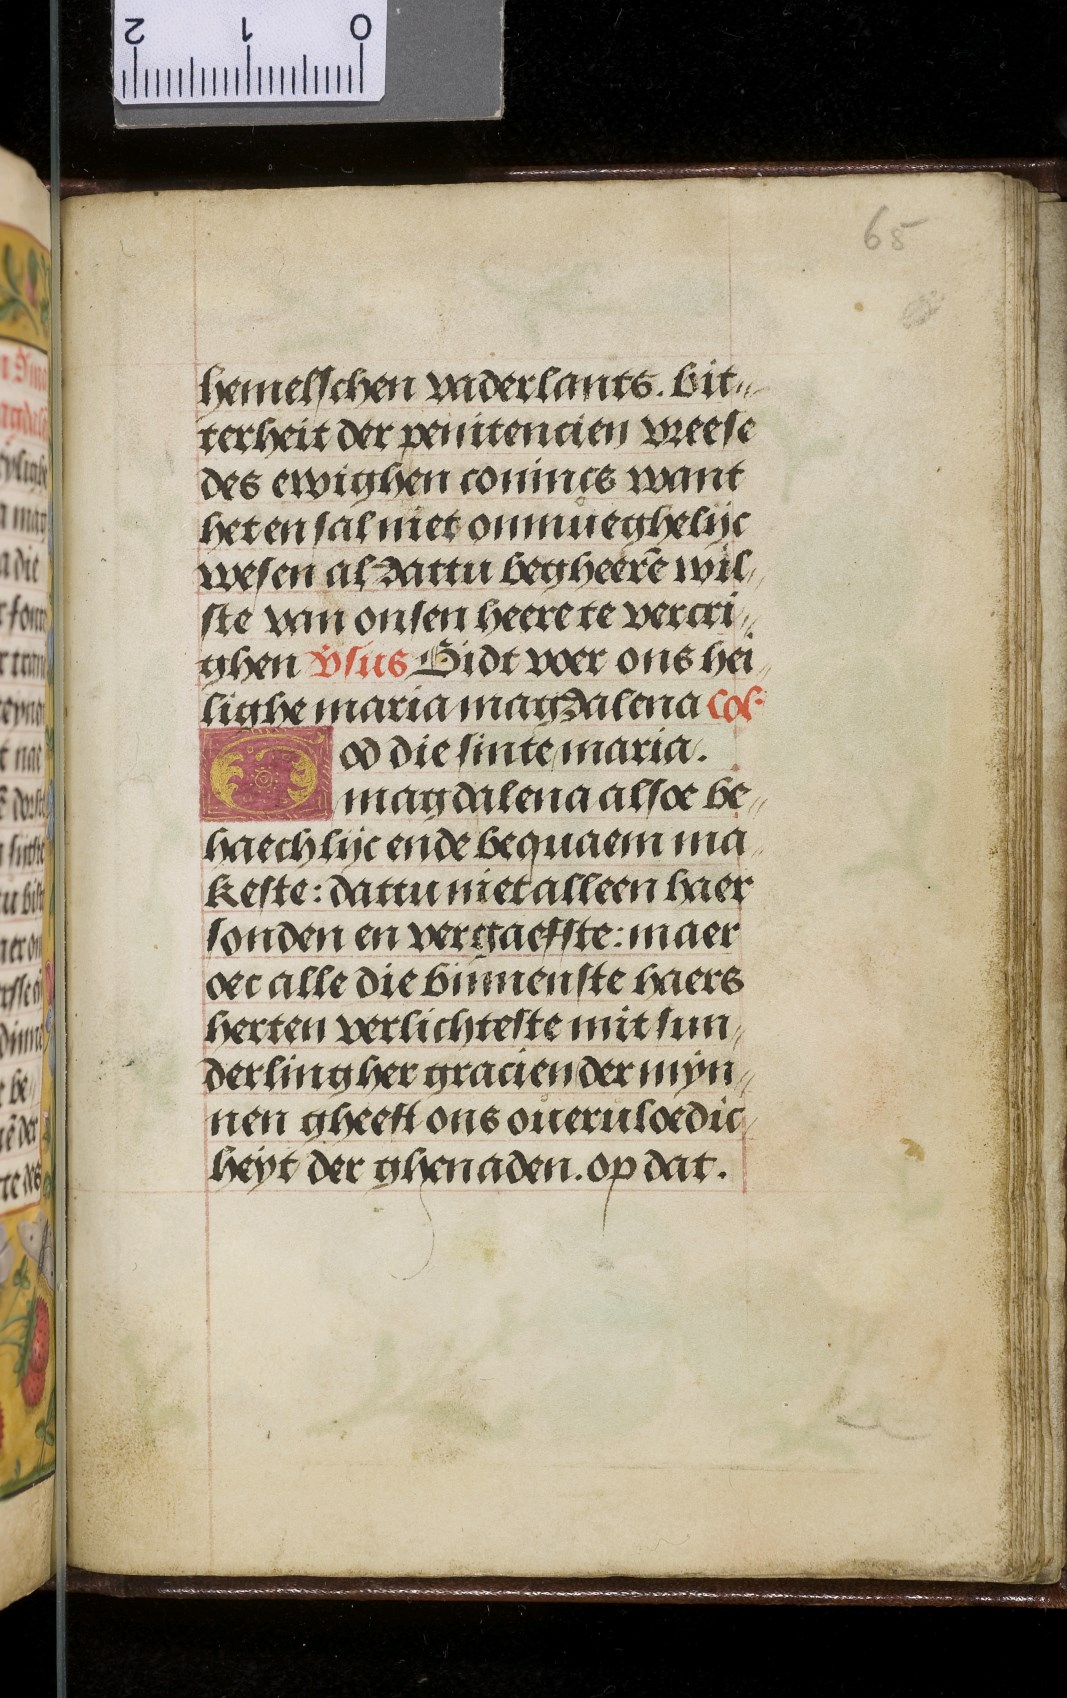 2 1 0
65
hemelschen vaderlants. bit〃
terheit der penitencien vreese
des ewighen conincs want
het en sal niet onmueghelijc
wesen al dattu begheerē wil〃
ste van onsen heere te vercri〃
ghen v̄sus Bidt voer ons hei〃
lighe maria magdalena Col̄
God die sinte maria.
magdalena alsoe be〃
haechlijc ende bequaem ma〃
keste: dattu niet alleen haer
sonden en vergaefste: maer
oec alle die binnenste haers
herten verlichteste mit sun〃
derlingher gracien der mijn〃
nen gheeft ons oueruloedic〃
heyt der ghenaden. op dat.